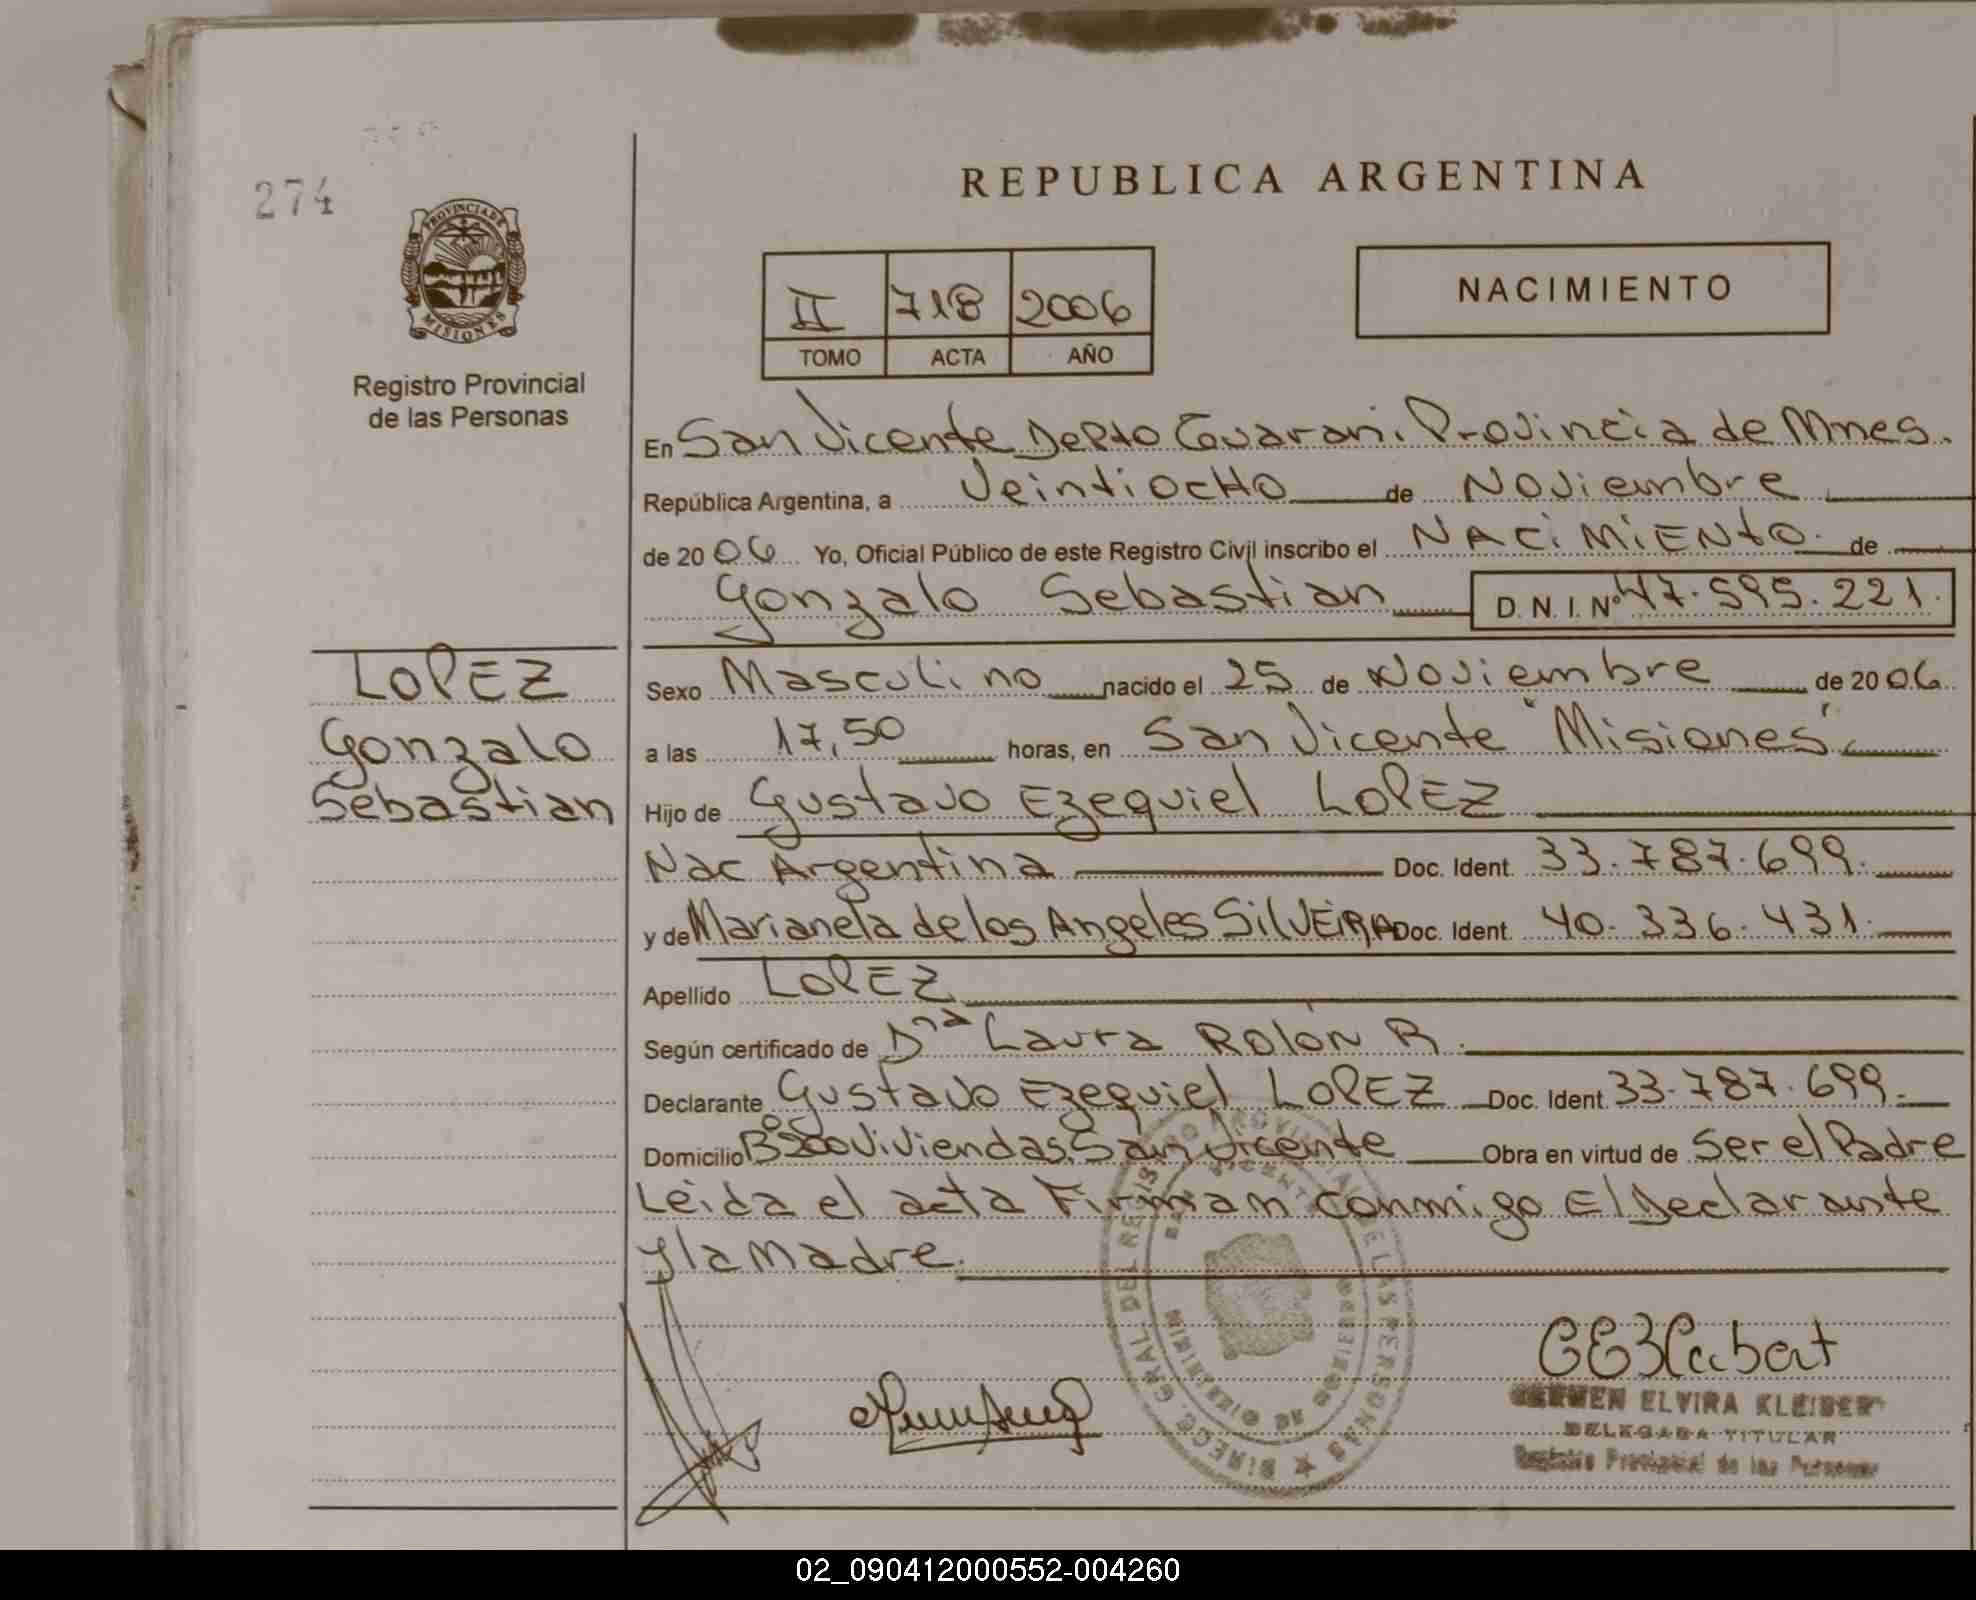 REPUBLICA ARGENTINA
274
PROVINCIA DE
MISIONES
Registro Provincial
de las Personas
II 718 2006
TOMO ACTA AÑO
NACIMIENTO
En San Vicente Depto Guarani. Provincia de Mnes.
República Argentina, a Veintiocho de Noviembre
de 2006 Yo, Oficial Público de este Registro Civil inscribo el NACiMiENto de
Gonzalo Sebastian D. N. I. Nº 47.595.221.
LOPEZ
Gonzalo
Sebastian
Sexo Masculino nacido el 25 de Noviembre de 2006
a las 17,50 horas, en San Vicente "Misiones"
Hijo de Gustavo Ezequiel LOPEZ
Nac Argentina Doc. Ident. 33.787.699.
y de Marianela de los Angeles SilVEiRA Doc. Ident. 40.336.431.
Apellido LOPEZ
Según certificado de Dra Laura Rolón R.
Declarante Gustavo Ezequiel LOPEZ Doc. Ident. 33.787.699.
Domicilio Bº 200 Viviendas. San Vicente Obra en virtud de Ser el Padre
Leida el acta Firman conmigo El Declarante
y la Madre.
DIRECC. GRAL DEL REGISTRO PROVINCIAL DE LAS PERSONAS
CARMEN ELVIRA KLEIBER
DELEGADA TITULAR
Registro Provincial de las Personas
02_090412000552-004260